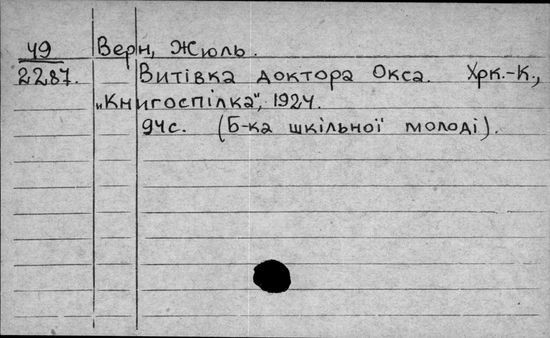 49 Верн, Жюль.
2287. Витівка доктора Окса. Хрк.-К.,
„Книгоспілка", 1924.
94с. (Б-ка шкільної молоді).